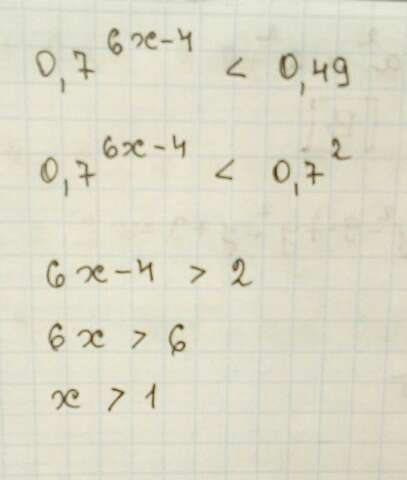 0,7^{6x-4} < 0,49
0,7^{6x-4} < 0,7^{2}
6x-4 > 2
6x > 6
x > 1